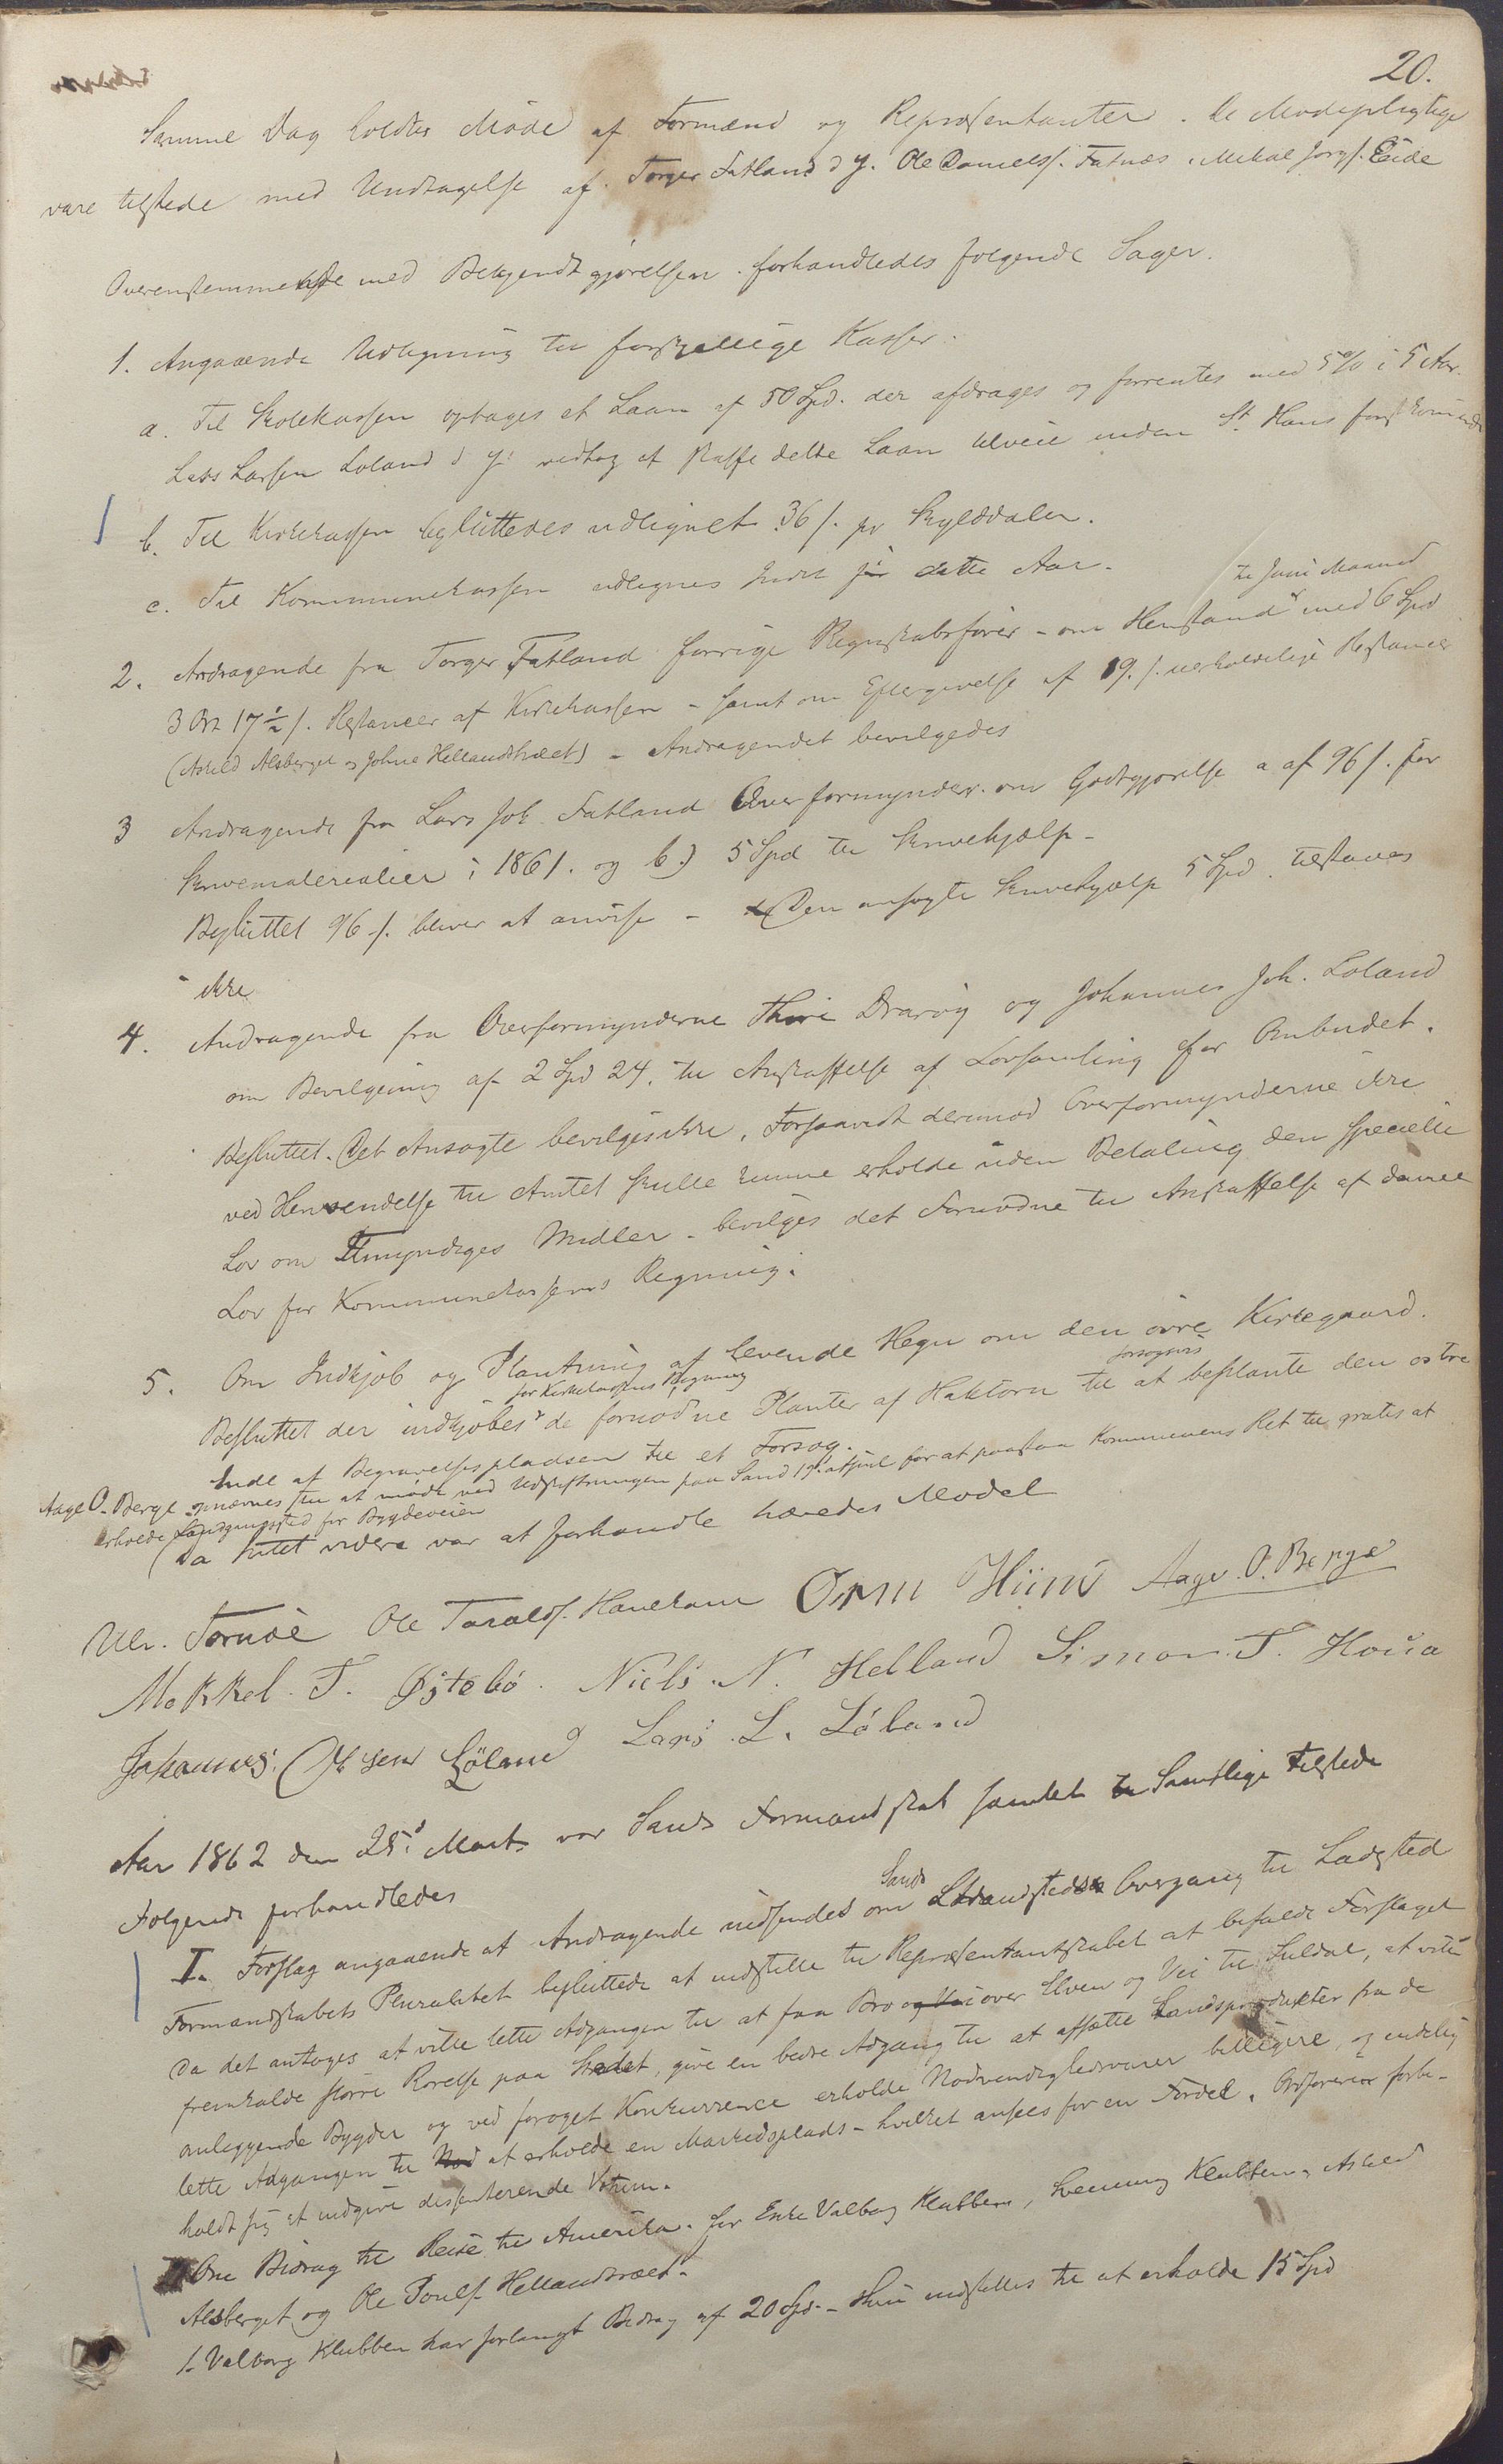 20.
Samme Dag holdtes Møde af Formænd og Repræsentanter. De Mødepligtige
vare tilstede med Undtagelse af Torger Fatland d y. Ole Danielss. Fatnæs. Mikal Jørgs. Eide
Overenstemmende med Bekjendtgjørelsen forhandledes følgende Sager.
1. Angaaende Udligning til forskjellige Kasser:
a. Til Skolekassen optages et Laan af 50 Spd. der afdrages og forrentes med 5% i 5 Aar.
Lars Larsen Løland d y. vedtog at skaffe dette Laan tilveie inden St. Hans førstkommende
b. Til Kirkekassen besluttedes udlignet 36 s. pr Skylddaler.
c. Til Kommunekassen udlignes Intet for dette Aar.
2. Andragende fra Torger Fatland forrige Regnskabsfører - om Henstand til Juni Maaned med 6 Spd
3 Ort 17½ s. Restancer af Kirkekassen - samt om Eftergivelse af 19 s. uerholdelige Restancer
(Askild Alsberget og Johne Hellandstræet) - Andragendet bevilgedes
3 Andragende fra Lars Joh. Fatland Overformynder om Godtgjørelse a af 96 s. for
Skrivematerialier i 1861. og b.) 5 Spd til Skrivehjælp -
Besluttet 96 s. bliver at anvise - Den ansøgte Skrivehjælp 5 Spd. tilstaaes
ikke
4. Andragende fra Overformynderne Thore Drarvig og Johannes Joh. Løland
om Bevilgning af 2 Spd 24. til Anskaffelse af Lovsamling for Ombudet.
Besluttet. Det Ansøgte bevilges ikke. Forsaavidt derimod Overformynderne ikke
ved Henvendelse til Amtet skulle kunne erholde uden Betaling den specielle
Lov om Umyndiges Midler - bevilges det Fornødne til Anskaffelse af denne
Lov for Kommunekassens Regning.
5. Om Indkjøb og Plantning af levende Hegn om den øvre Kirkegaard.
Besluttet der indkjøbes for Kirkekassens Regning de fornødne Planter af Haktorn til forsøgsvis at beplante den østre
Ende af Begravelsespladsen til et Forsøg.
Aage O. Berge opnævnes til at møde ved Udskiftningen paa Sand 19d. April for at paastaa Kommunens Ret til gratis at
erholde Landgangssted for Bygdeveien
Da Intet videre var at forhandle hævedes Mødet
Ulr. Tornøe Ole Taralds. Havekam Orm Hiim Aage. O. Berge
Mekkel. T. Østebø. Niels. N. Helland Simon. T. Hovia
Johannes. Olsen Løland Lars. L. Løland
Aar 1862 den 25d. Marts var Sands Formandskab samlet Samtlige tilstede
Følgende forhandledes
I. Forslag angaaende at Andragende indsendes om Sands Strandsteds Overgang til Ladested
Formandskabets Pluralitet besluttede at indstille til Repræsentantskabet at bifalde Forslaget
da det antages at ville lette Adgangen til at faa Bro og Vei over Elven og Vei til Suldal, at ville
fremkalde større Rørelse paa Stedet, give en bedre Adgang til at afsætte Landsprodukter fra de
omliggende Bygder og ved forøget Konkurrence erholde Nødvendighedsvarer billigere, og endelig
lette Adgangen til Nød at erholde en Markedsplads - hvilket ansees for en Fordel. Ordføreren forbe-
holdt sig at indgive dissenterende Votum.
II Om Bidrag til Reise til Amerika for Enke Valborg Klubben, Henning Klubben, Askild
Alsberget og Ole Pouls. Hellandstræet.
1. Valborg Klubben har forlangt Bidrag af 20 Spd. - Hun indstilles til at erholde 15 Spd